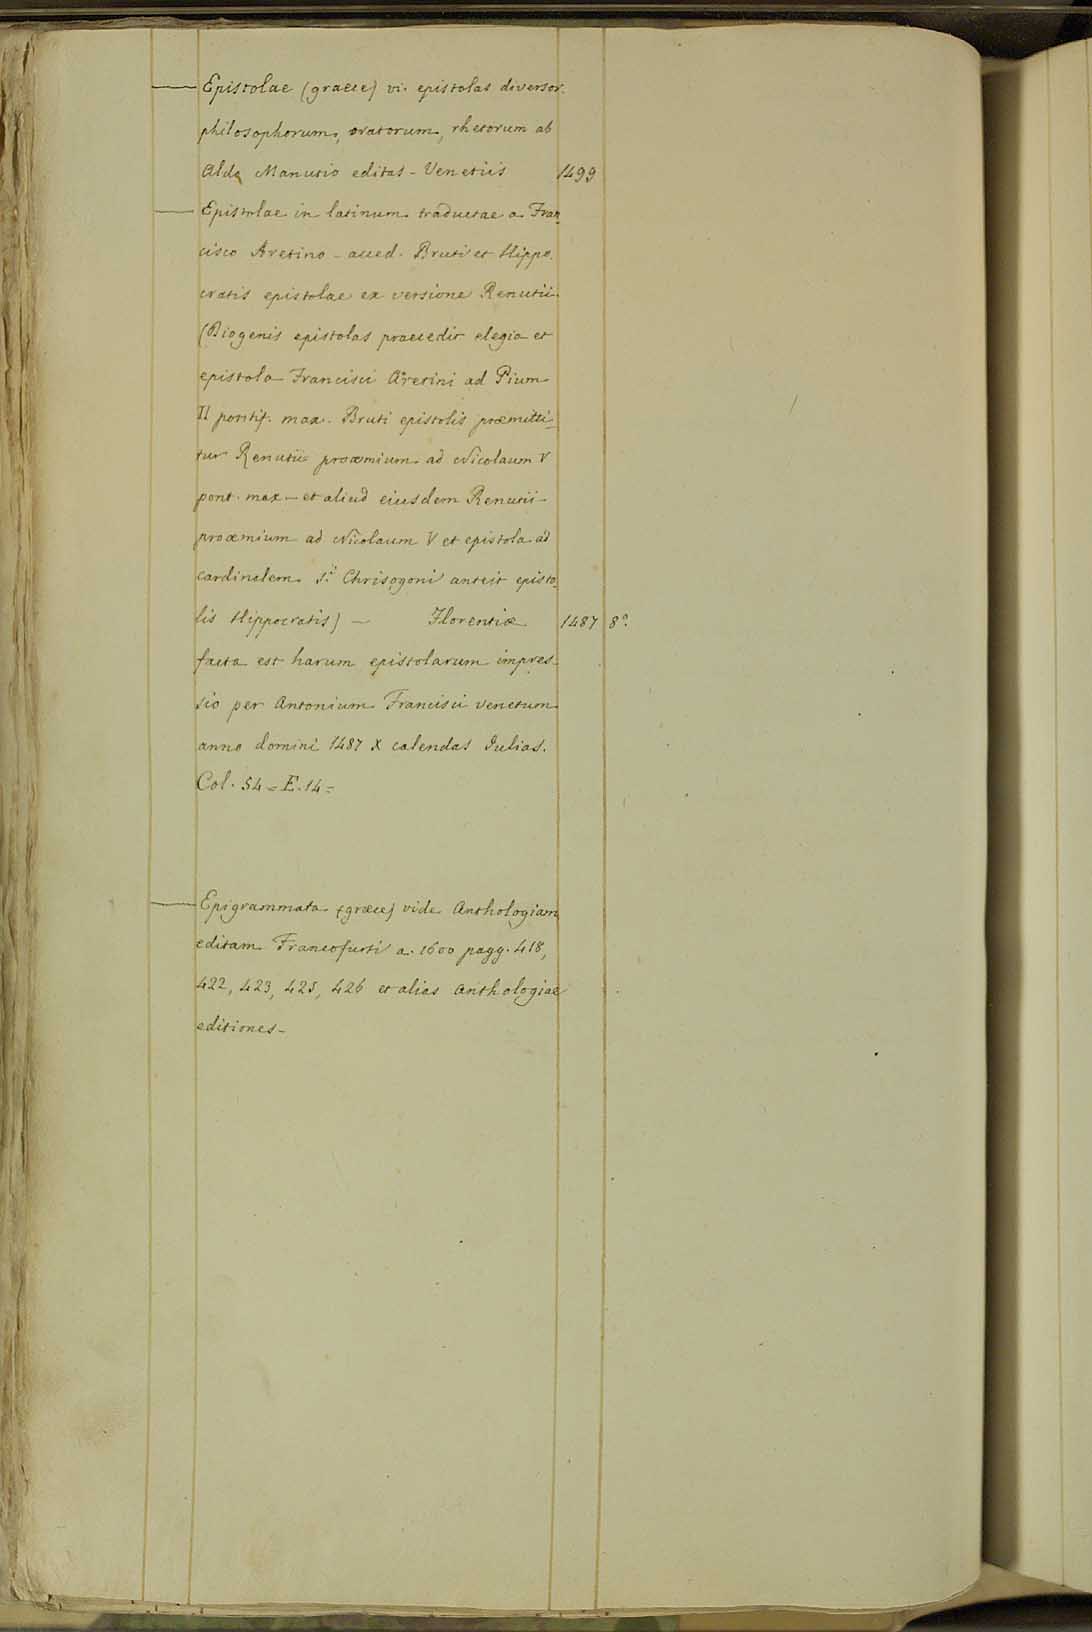 — Epistolae (graece) vi. epistolas diversor.
philosophorum, oratorum, rhetorum ab
Aldo Manutio editas - Venetiis 1499
— Epistolae in latinum traductae a Fran
cisco Aretino - acced. Bruti et Hippo.
cratis epistolae ex versione Renutii
(Diogenis epistolas praecedit elegia et
epistola Francisci Aretini ad Pium
II pontif. max. Bruti epistolis præmitti-
tur Renutii proæmium ad Nicolaum V
pont. max - et aliud eiusdem Renutii
proæmium ad Nicolaum V et epistola ad
cardinalem S.i Chrisogoni anteit episto
lis Hippocratis) — Florentiæ 1487 8º.
facta est harum epistolarum impres-
sio per Antonium Francisci venetum
anno domini 1487 X calendas Julias.
Col. 54 = E. 14 =
— Epigrammata (græce) vide Anthologiam
editam Francofurti a. 1600 pagg. 418,
422, 423, 425, 426 et alias Anthologiae
editiones -